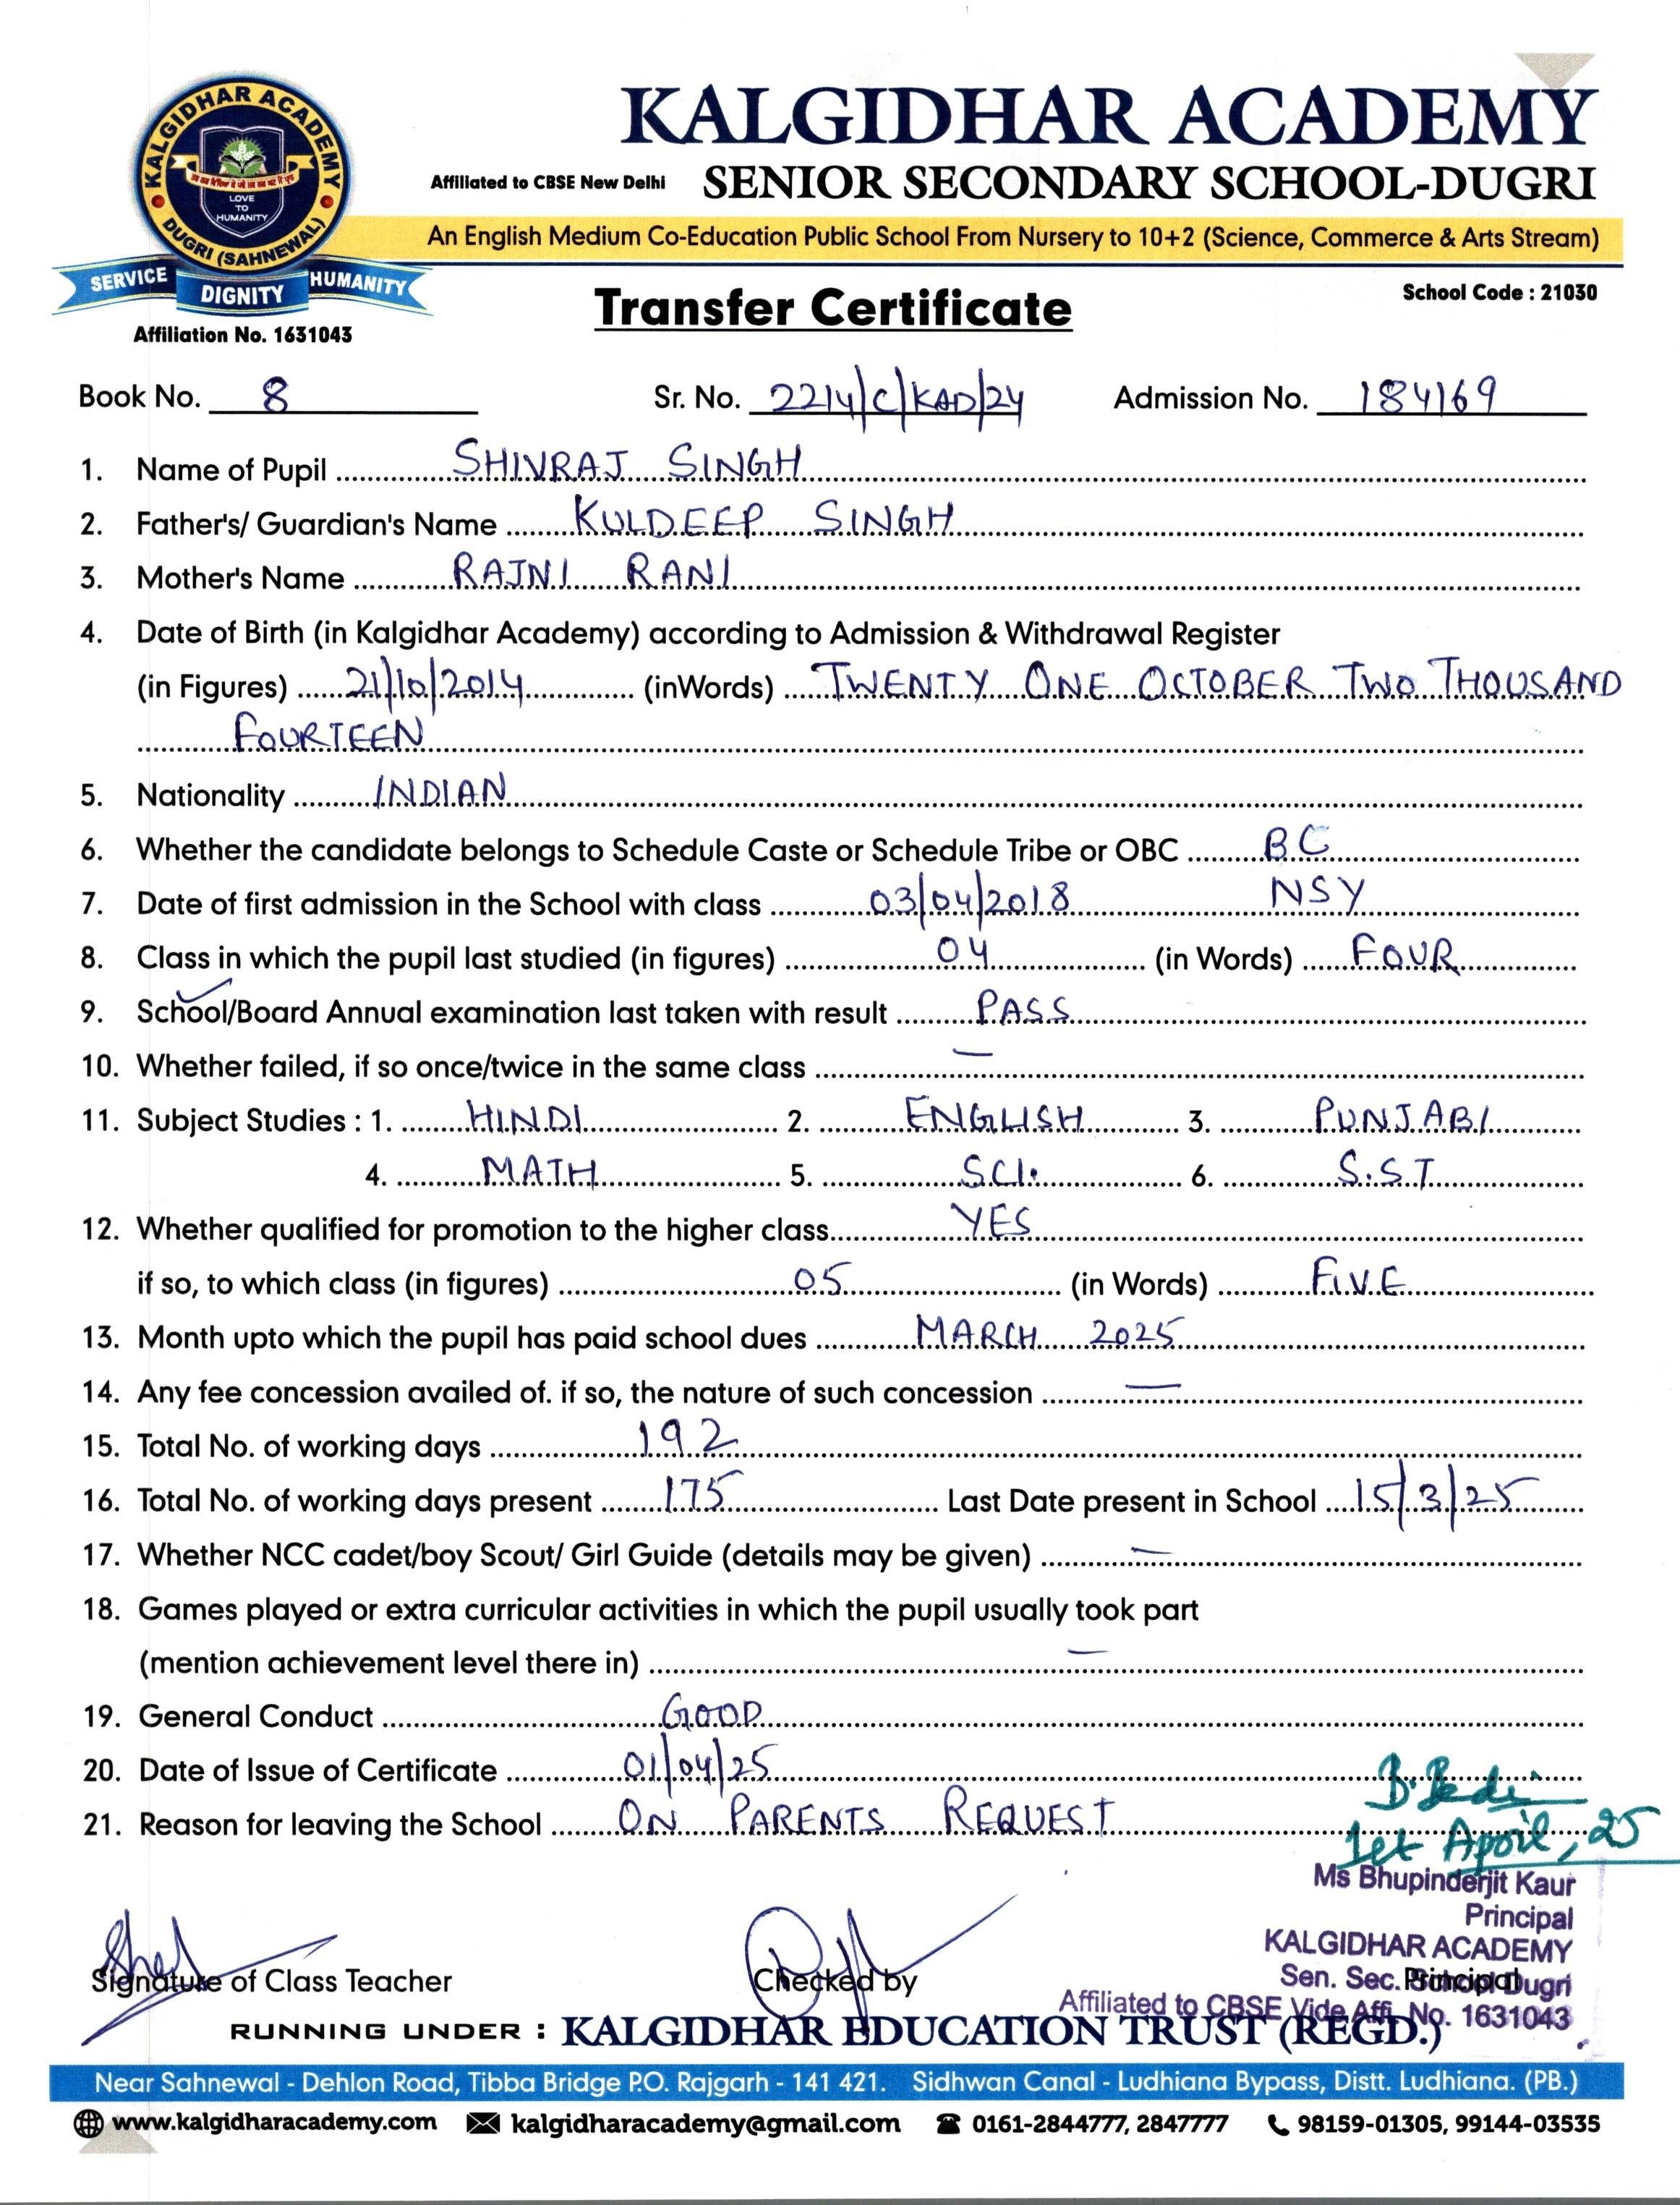 KALGIDHAR ACADEMY
DUGRI (SAHNEWAL)
LOVE
TO
HUMANITY
SERVICE DIGNITY HUMANITY
Affiliation No. 1631043
KALGIDHAR ACADEMY
Affiliated to CBSE New Delhi SENIOR SECONDARY SCHOOL-DUGRI
An English Medium Co-Education Public School From Nursery to 10+2 (Science, Commerce & Arts Stream)
School Code : 21030
Transfer Certificate
Book No. 8 Sr. No. 2214/C/KAD/24 Admission No. 184169
1. Name of Pupil SHIVRAJ SINGH
2. Father's/ Guardian's Name KULDEEP SINGH
3. Mother's Name RAJNI RANI
4. Date of Birth (in Kalgidhar Academy) according to Admission & Withdrawal Register
(in Figures) 21/10/2014 (inWords) TWENTY ONE OCTOBER TWO THOUSAND
FOURTEEN
5. Nationality INDIAN
6. Whether the candidate belongs to Schedule Caste or Schedule Tribe or OBC BC
7. Date of first admission in the School with class 03/04/2018 NSY
8. Class in which the pupil last studied (in figures) 04 (in Words) FOUR
9. School/Board Annual examination last taken with result PASS
10. Whether failed, if so once/twice in the same class —
11. Subject Studies : 1. HINDI 2. ENGLISH 3. PUNJABI
4. MATH 5. SCI. 6. S.ST
12. Whether qualified for promotion to the higher class YES
if so, to which class (in figures) 05 (in Words) FIVE
13. Month upto which the pupil has paid school dues MARCH 2025
14. Any fee concession availed of. if so, the nature of such concession —
15. Total No. of working days 192
16. Total No. of working days present 175 Last Date present in School 15/3/25
17. Whether NCC cadet/boy Scout/ Girl Guide (details may be given) —
18. Games played or extra curricular activities in which the pupil usually took part
(mention achievement level there in) —
19. General Conduct GOOD
20. Date of Issue of Certificate 01/04/25
21. Reason for leaving the School ON PARENTS REQUEST
B. Bedi
1st April, 25
Ms Bhupinderjit Kaur
Principal
KALGIDHAR ACADEMY
Sen. Sec. School Dugri
Affiliated to CBSE Vide Affi. No. 1631043
Signature of Class Teacher Checked by Principal
RUNNING UNDER : KALGIDHAR EDUCATION TRUST (REGD.)
Near Sahnewal - Dehlon Road, Tibba Bridge P.O. Rajgarh - 141 421. Sidhwan Canal - Ludhiana Bypass, Distt. Ludhiana. (PB.)
www.kalgidharacademy.com kalgidharacademy@gmail.com 0161-2844777, 2847777 98159-01305, 99144-03535